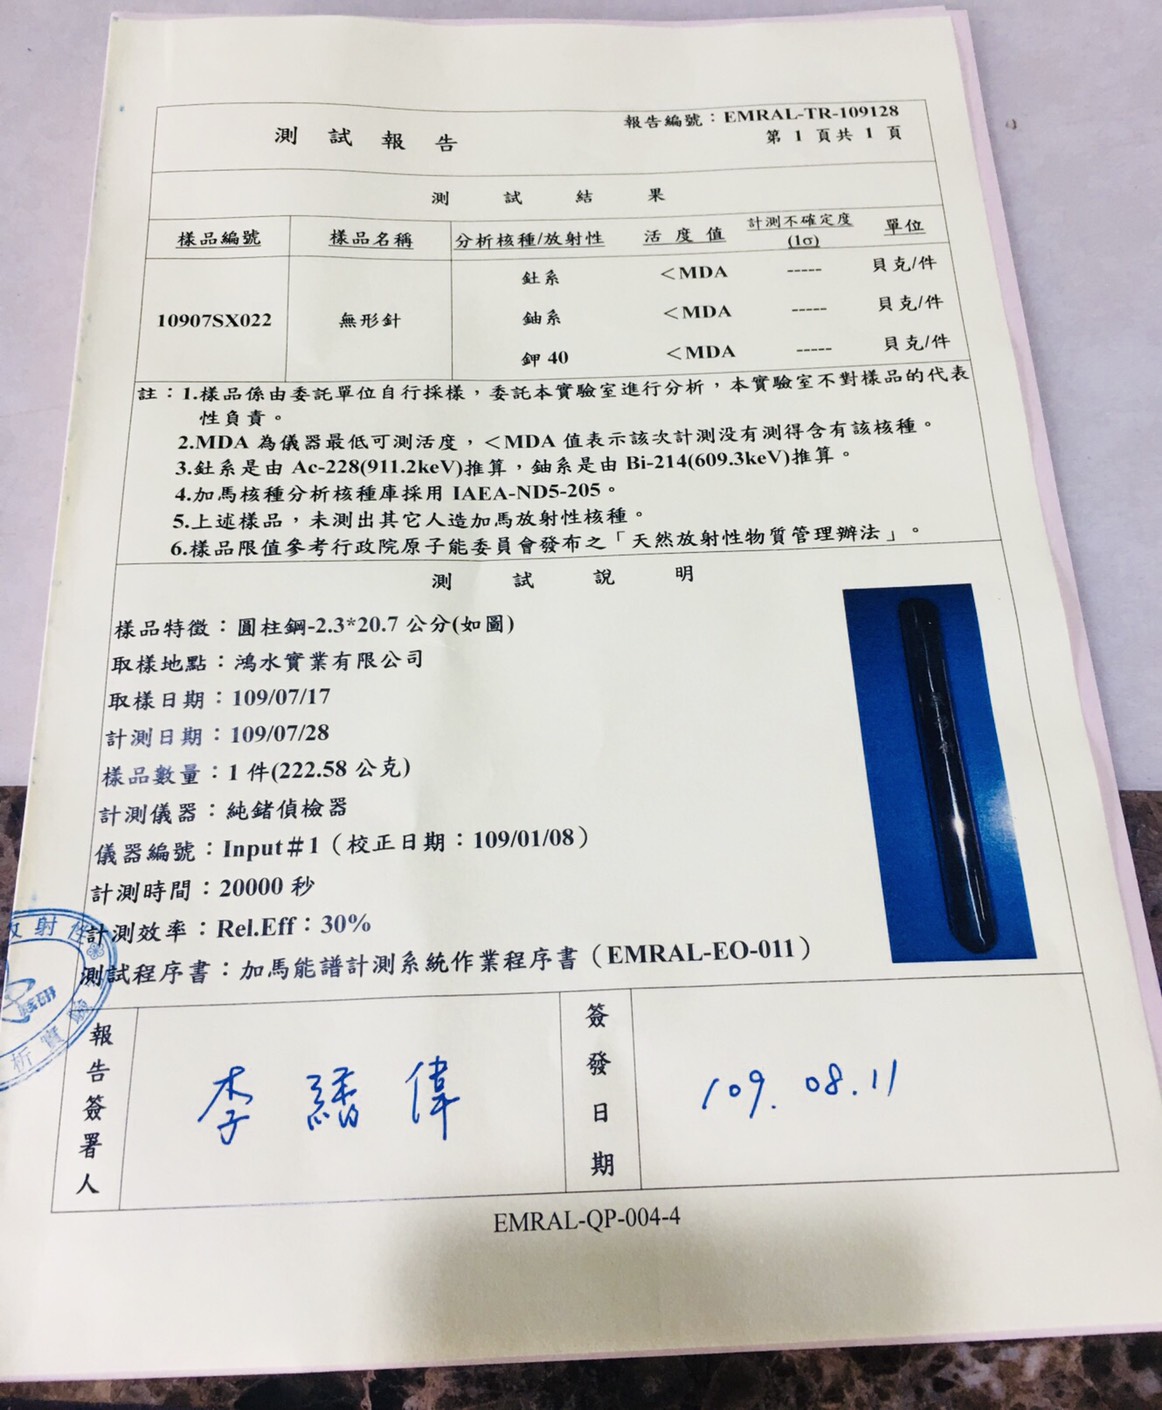 測試報告
報告編號：EMRAL-TR-109128
第 1 頁共 1 頁
測試結果
樣品編號 樣品名稱 分析核種/放射性 活度值 計測不確定度(1σ) 單位
釷系 ＜MDA ----- 貝克/件
10907SX022 無形針 鈾系 ＜MDA ----- 貝克/件
鉀 40 ＜MDA ----- 貝克/件
註：1.樣品係由委託單位自行採樣，委託本實驗室進行分析，本實驗室不對樣品的代表
性負責。
2.MDA 為儀器最低可測活度，＜MDA 值表示該次計測没有測得含有該核種。
3.釷系是由 Ac-228(911.2keV)推算，鈾系是由 Bi-214(609.3keV)推算。
4.加馬核種分析核種庫採用 IAEA-ND5-205。
5.上述樣品，未測出其它人造加馬放射性核種。
6.樣品限值參考行政院原子能委員會發布之「天然放射性物質管理辦法」。
測試說明
樣品特徵：圓柱鋼-2.3*20.7 公分(如圖)
取樣地點：鴻水實業有限公司
取樣日期：109/07/17
計測日期：109/07/28
樣品數量：1 件(222.58 公克)
計測儀器：純鍺偵檢器
儀器編號：Input＃1（校正日期：109/01/08）
計測時間：20000 秒
計測效率：Rel.Eff：30%
測試程序書：加馬能譜計測系統作業程序書（EMRAL-EO-011）
報告簽署人
李繙偉
簽發日期
109.08.11
射性
析實驗
EMRAL-QP-004-4